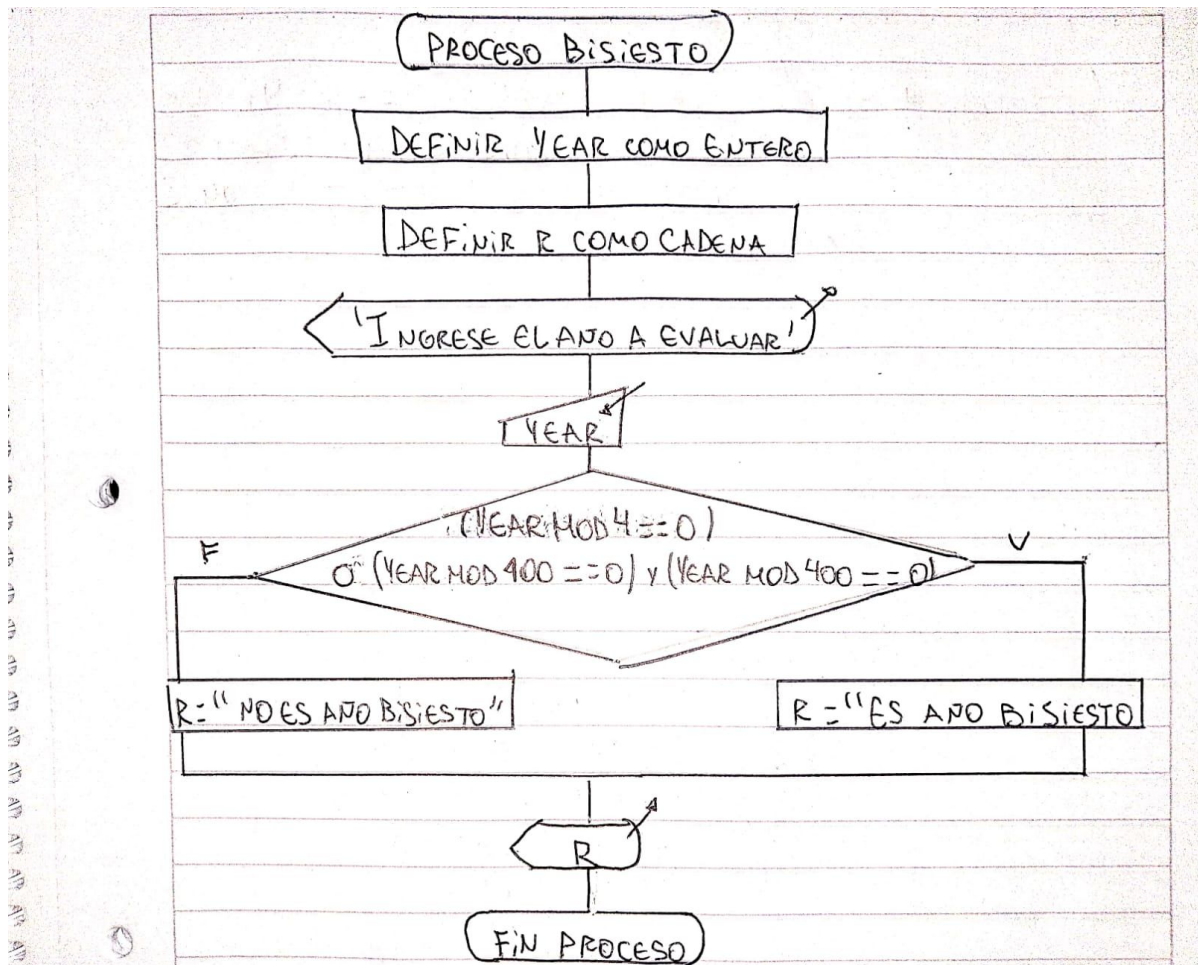 PROCESO BISIESTO
DEFINIR YEAR COMO ENTERO
DEFINIR R COMO CADENA
'INGRESE EL AÑO A EVALUAR'
YEAR
(YEAR MOD 4 == 0)
O (YEAR MOD 400 == 0) Y (YEAR MOD 400 == 0)
F
V
R = "NO ES AÑO BISIESTO"
R = "ES AÑO BISIESTO
R
FIN PROCESO